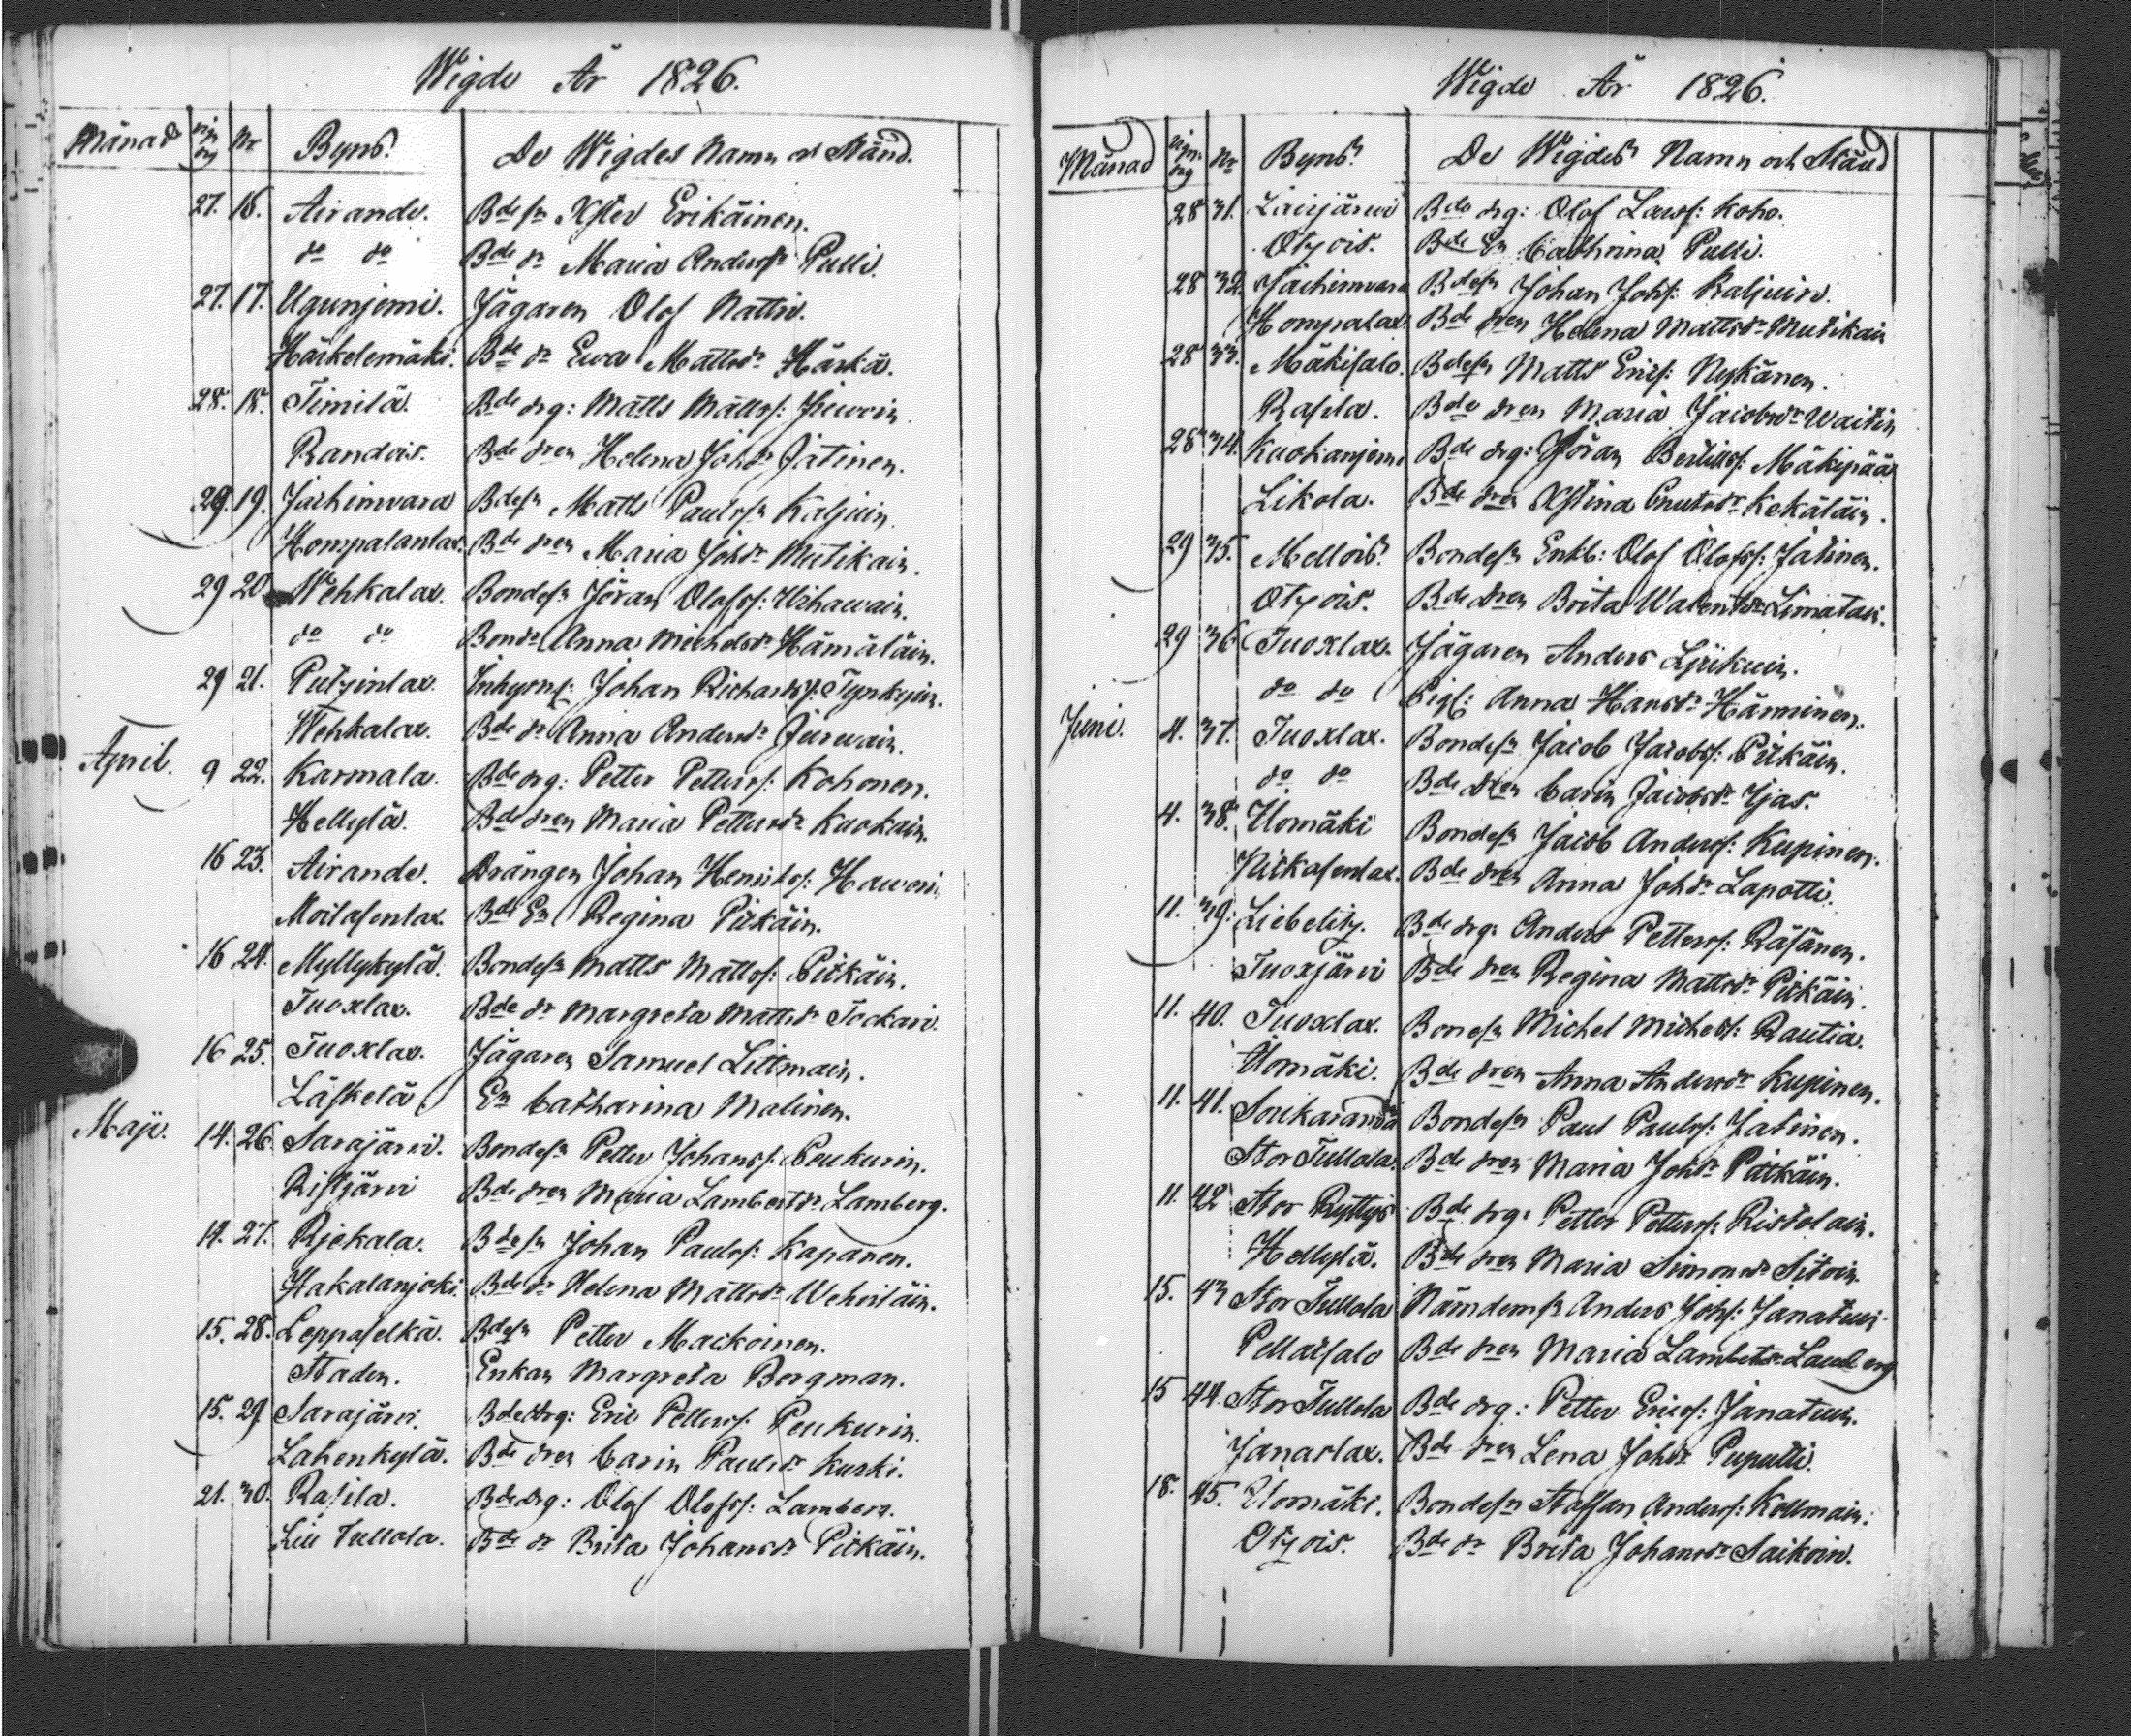 Wigde År 1826.
Månad Nr Byns. De Wigdes Namn och Stånd.
27. 16. Airande. Bdesn Xster Erikäinen.
do do Bde dr Maria Andersdr Pulli.
27. 17. Ugunjemi. Jägaren Olof Nattio.
Härkelemäki. Bde dr Ewa Mattsdr Härkä.
28. 18. Timilä. Bde drg: Matts Mattss:
Randois. Bde dren Helena Johsdr Jätinen.
29. 19. Jachimvara Bdesn Matts Paulssn Kaljuin.
Hompalanlax. Bde dren Maria Johdr Mutikain.
29 20. Wehkalax. Bondesn Jöran Olofss: Wihawain.
do do Bondr Anna Michelsdr Hämäläin.
29 21. Putzinlax. Inhysesn: Johan Richardss: Tynkyin.
Wehkalax. Bde dr Anna Andersdr Jurwain.
April. 9 22. Karmala. Bde drg: Petter Petterss: Kohonen.
Hellylä. Bde dren Maria Pettersdr Kuokain.
16 23. Airande. Drängen Johan Henrikss: Hawoin.
Moilasenlax. Bde En Regina Pitkäin.
16 24. Myllykylä. Bondesn Matts Mattss: Pitkäin.
Tuoxlax. Bde dr Margreta Mattsdr Tockari.
16 25. Tuoxlax. Jägaren Samuel Littmain.
Läskelä En Catharina Malinen.
Maji. 14. 26. Sarajärvi. Bondesn Petter Johanss: Peukurin.
Ristjärvi Bde dren Maria Lambertdr Lamberg.
14. 27. Rjekala. Bdesn Johan Paulss: Kapanen.
Hakalanjoki. Bde dr Helena Mattsdr Wehviläin.
15. 28. Leppäselkä. Bdesn Petter Mackoinen.
Staden. Enkan Margreta Bergman.
15. 29 Sarajärvi. Bde drg: Eric Petterss: Peukurin.
Lahenkylä. Bde dren Carin Paulsdr Kurki.
21. 30. Rasila. Bde drg: Olof Olofss: Lamberg.
Lill Tullola. Bde dr Brita Johansdr Pitkäin.
Wigde År 1826.
Månad Nr Byns De Wigdes Namn och Stånd
28 31. Lavijärwi Bde drg: Olof Larss: Koho.
Otzois. Bde En Cathrina Pulli.
28 32. Jachimvara Bdesn Johan Johss: Kaljuin.
Hompalax. Bde dren Helena Mattsdr Mutikain
28 33. Mäkisalo. Bdesn Matts Erics: Nykänen.
Rasila. Bde dren Maria Jacobsdr Waitin
28 34. Kuokanjemi Bde drg: Jöran Bertilss: Mäkipää
Likola. Bde dren Xstina Cnutsdr Kekäläin.
29 35. Mellois Bondesn Enkl: Olof Olofss: Jätinen.
Otzois. Bde dren Brita Walentdr Limatain.
29 36 Tuoxlax. Jägaren Anders Lyikuin.
do do Pig: Anna Hansdr Hänninen.
Juni. 4. 37. Tuoxlax. Bondesn Jacob Jacobss: Pitkäin.
do do Bde dren Carin Jacobsdr Ijas.
4. 38. Uomäki Bondesn Jacob Anderss: Kupinen.
Pitkasenlax. Bde dren Anna Johdr Lapotti.
11. 39. Liebelitz. Bde drg: Anders Petterss: Räsänen.
Tuoxjärvi Bde dren Regina Mattsdr Pitkäin.
11. 40. Tuoxlax. Bonesn Michel Michelss: Rautia.
Uomäki. Bde dren Anna Andersdr Kupinen.
11. 41. Soukaranda Bondesn Paul Paulss: Jatinen.
Stor Tullola. Bde dren Maria Johdr Pitkäin.
11. 42 Stor Ryttys Bde drg: Petter Petterss: Ristolain.
Hellylä. Bde dren Maria Simonsdr Sitoin.
15. 43 Stor Tullola Nämdemsn Anders Johss: Janatuin.
Pellaisalo Bde dren Maria Lambertsdr Lamberg
15 44. Stor Tullola Bde drg: Petter Ericss: Janatuin.
Janaslax. Bde dren Lena Johdr Puputti.
18. 45. Uomäki. Bondesn Staffan Anderss: Kollmain.
Otzois. Bde dr Brita Johansdr Saikoin.